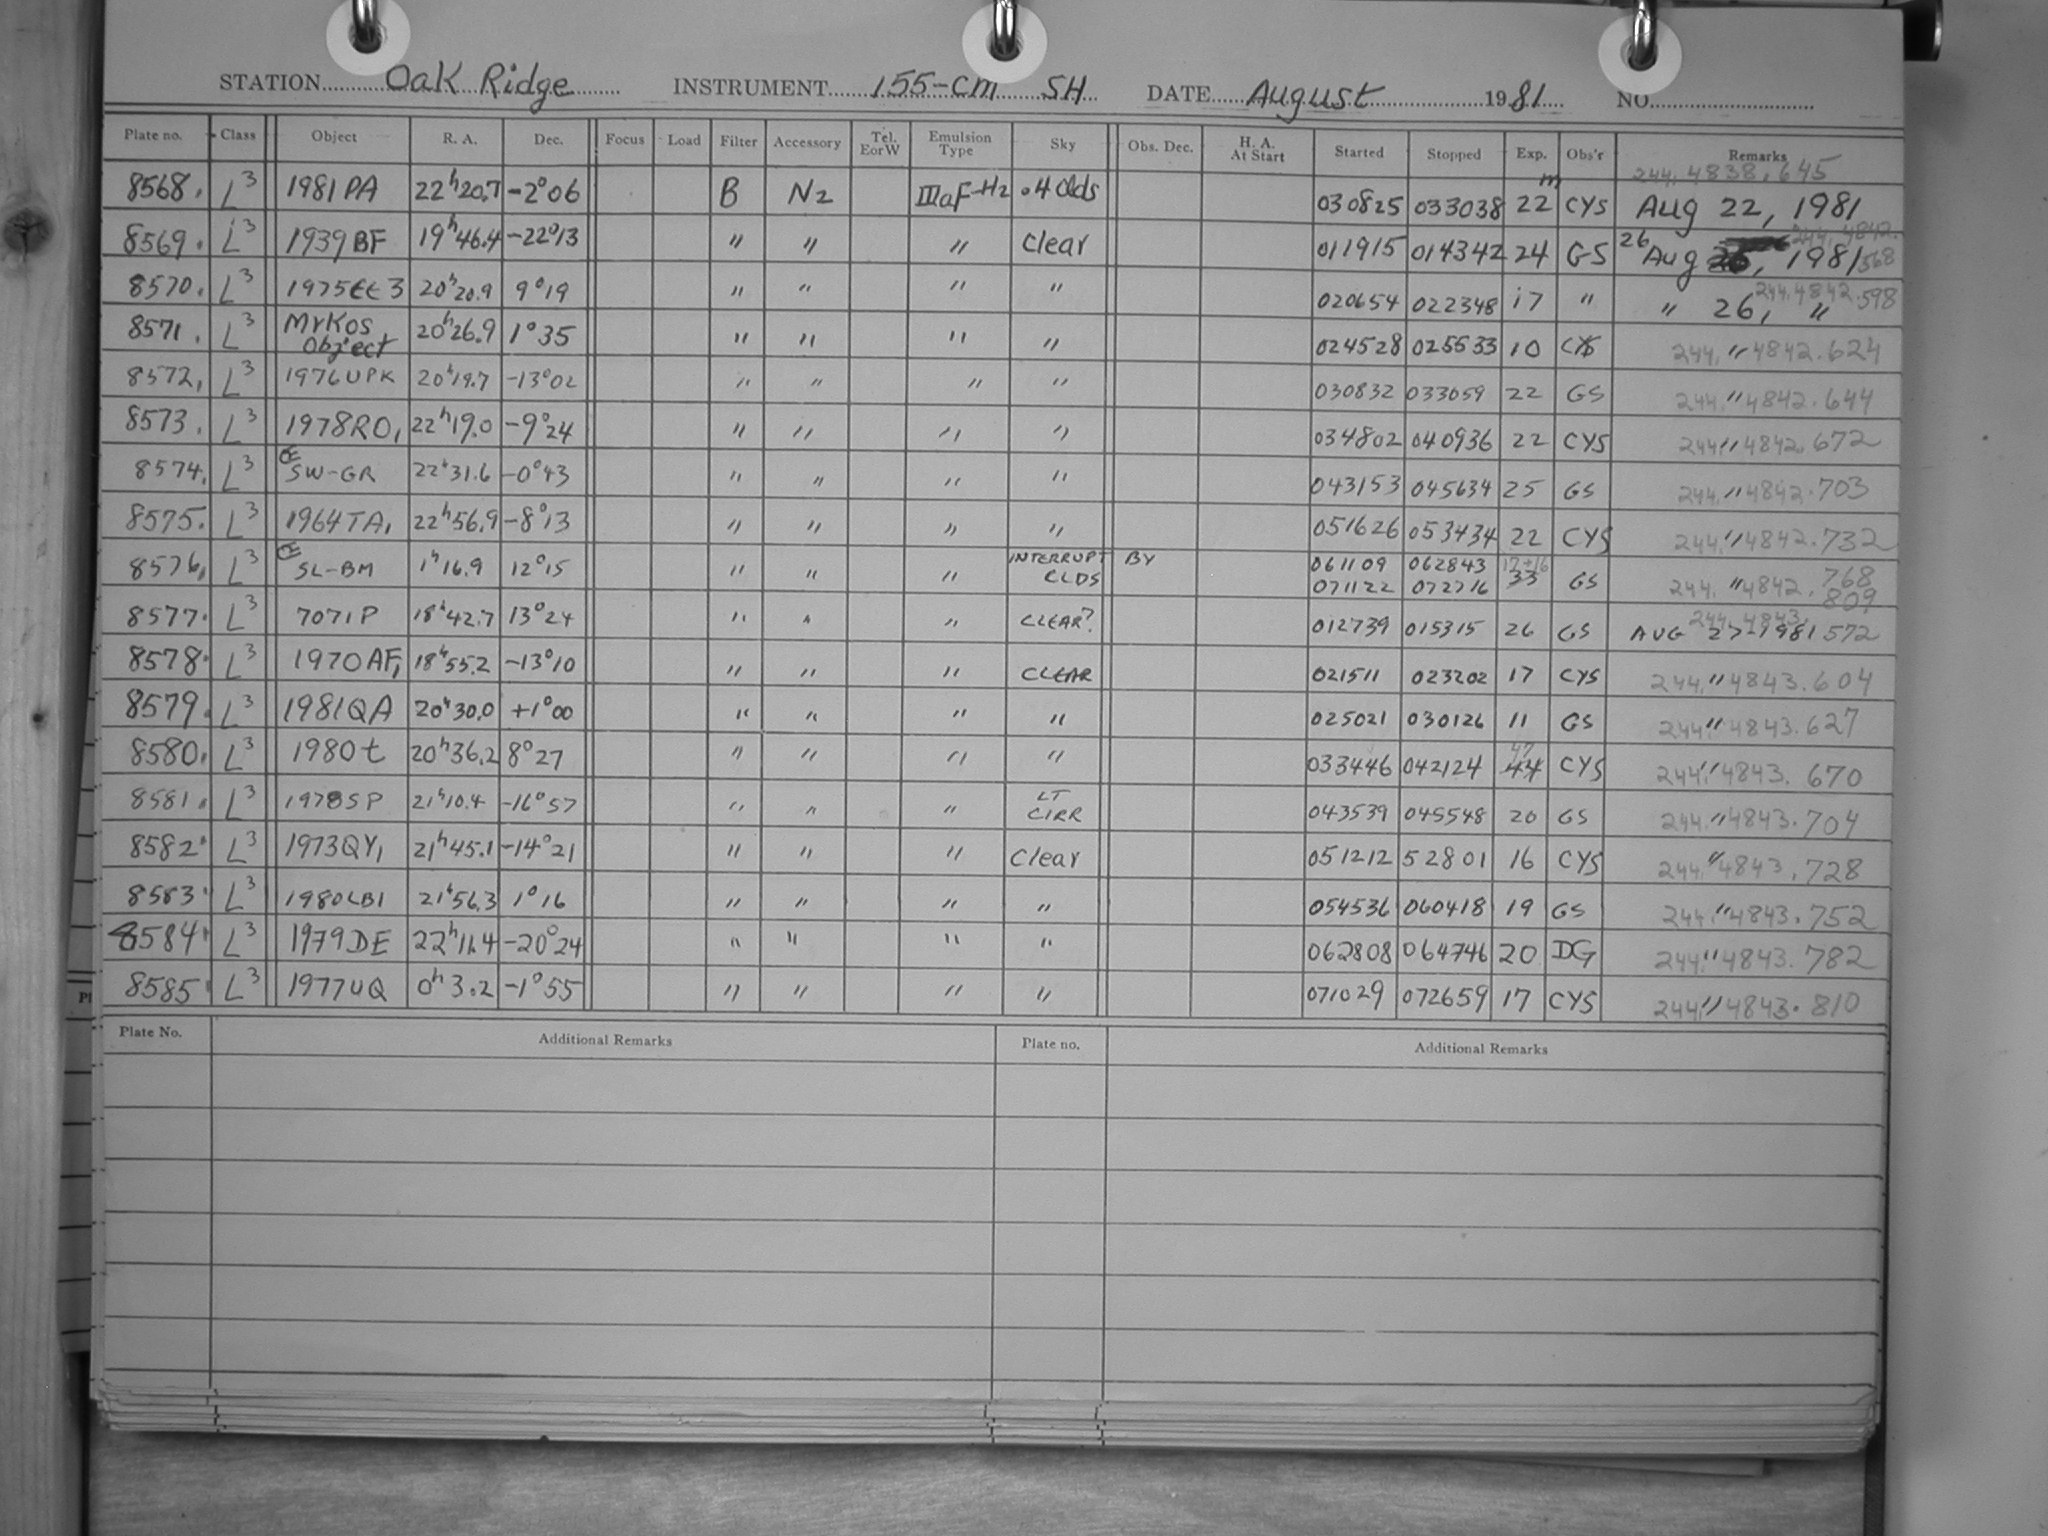 STATION Oak Ridge INSTRUMENT 155-cm SH DATE August 1981 NO.
Plate no. Class Object R. A. Dec. Focus Load Filter Accessory Tel. E or W Emulsion Type Sky Obs. Dec. H. A. At Start Started Stopped Exp. Obs'r Remarks
8568. L3 1981PA 22h20.7 -2°06 B N2 IIIaF-H2 .4 Clds 030825 033038 22m CYS Aug 22, 1981 244,4838,645
8569. L3 1939BF 19h46.4 -22°13 " " " Clear 011915 014342 24 GS 26 Aug 1981 244,4842.568
8570. L3 1975EE3 20h20.9 9°19 " " " " 020654 022348 17 " " 26, " 244,4842.598
8571. L3 Mrkos Object 20h26.9 1°35 " " " " 024528 025533 10 CYS 244," 4842.624
8572, L3 1976UPK 20h19.7 -13°02 " " " " 030832 033059 22 GS 244," 4842.644
8573. L3 1978RO1 22h19.0 -9°24 " " " " 034802 040936 22 CYS 244," 4842.672
8574. L3 SW-GR 22h31.6 -0°43 " " " " 043153 045634 25 GS 244," 4842.703
8575. L3 1964TA1 22h56.9 -8°13 " " " " 051626 053434 22 CYS 244," 4842.732
8576, L3 SL-BM 1h16.9 12°15 " " " INTERRUPT BY CLDS 061109 062843 17+16 33 GS 244, " 4842, 768
071122 072716 809
8577. L3 7071P 18h42.7 13°24 " " " CLEAR? 012739 015315 26 GS AUG 27-1981 244,4843,572
8578. L3 1970AF1 18h55.2 -13°10 " " " CLEAR 021511 023202 17 CYS 244," 4843.604
8579. L3 1981QA 20h30.0 +1°00 " " " " 025021 030126 11 GS 244," 4843.627
8580. L3 1980t 20h36.2 8°27 " " " " 033446 042124 47 44 CYS 244," 4843.670
8581. L3 1978SP 21h10.4 -16°57 " " " LT CIRR 043539 045548 20 GS 244," 4843.704
8582. L3 1973QY1 21h45.1 -14°21 " " " Clear 051212 52801 16 CYS 244," 4843.728
8583. L3 1980LB1 21h56.3 1°16 " " " " 054536 060418 19 GS 244," 4843.752
8584. L3 1979DE 22h11.4 -20°24 " " " " 062808 064746 20 DG 244," 4843.782
8585. L3 1977UQ 0h3.2 -1°55 " " " " 071029 072659 17 CYS 244," 4843.810
Plate No. Additional Remarks Plate no. Additional Remarks